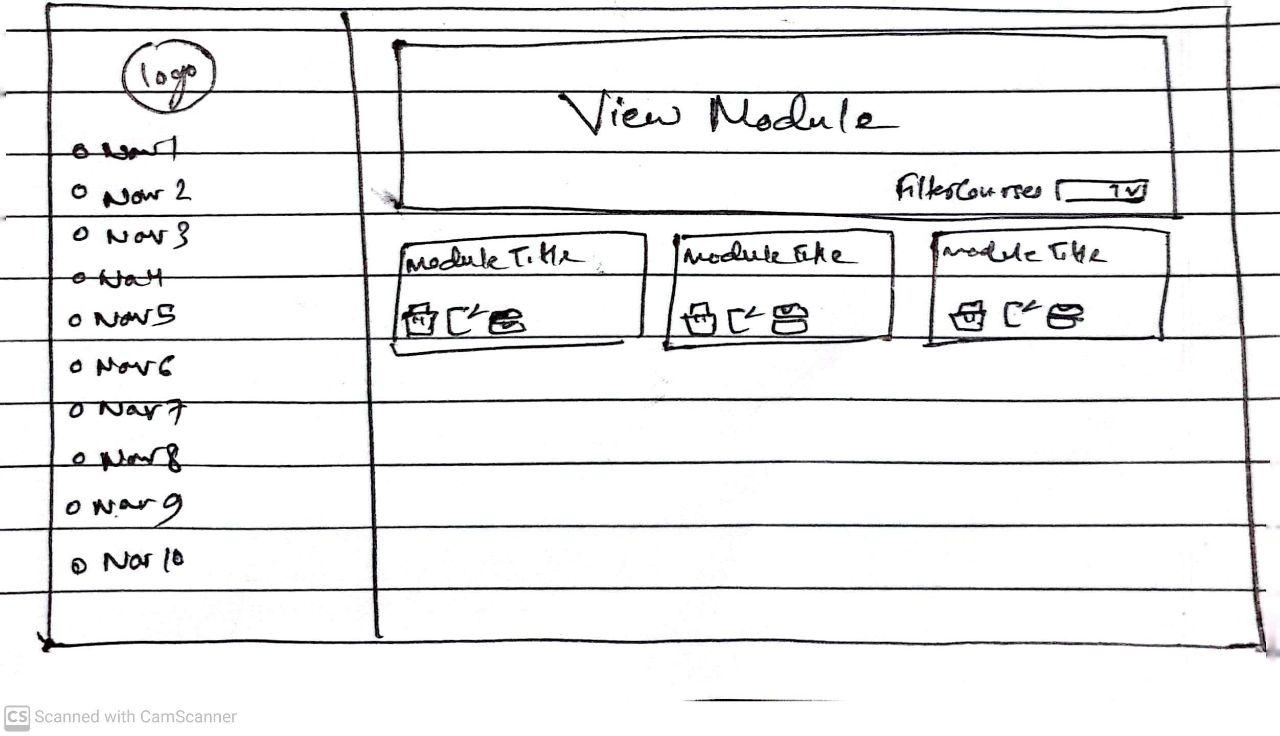 logo
Nav 1
Nav 2
Nav 3
Nav 4
Nav 5
Nav 6
Nav 7
Nav 8
Nav 9
Nav 10
View Module
Filter Courses
Module Title
Module Title
Module Title
CS Scanned with CamScanner